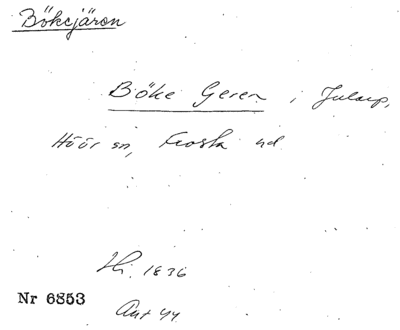 Bökejäron
Böke Geren i Jularp,
Höör sn, Frosta hd
Hi. 1836
Nr 6853
Ant 44